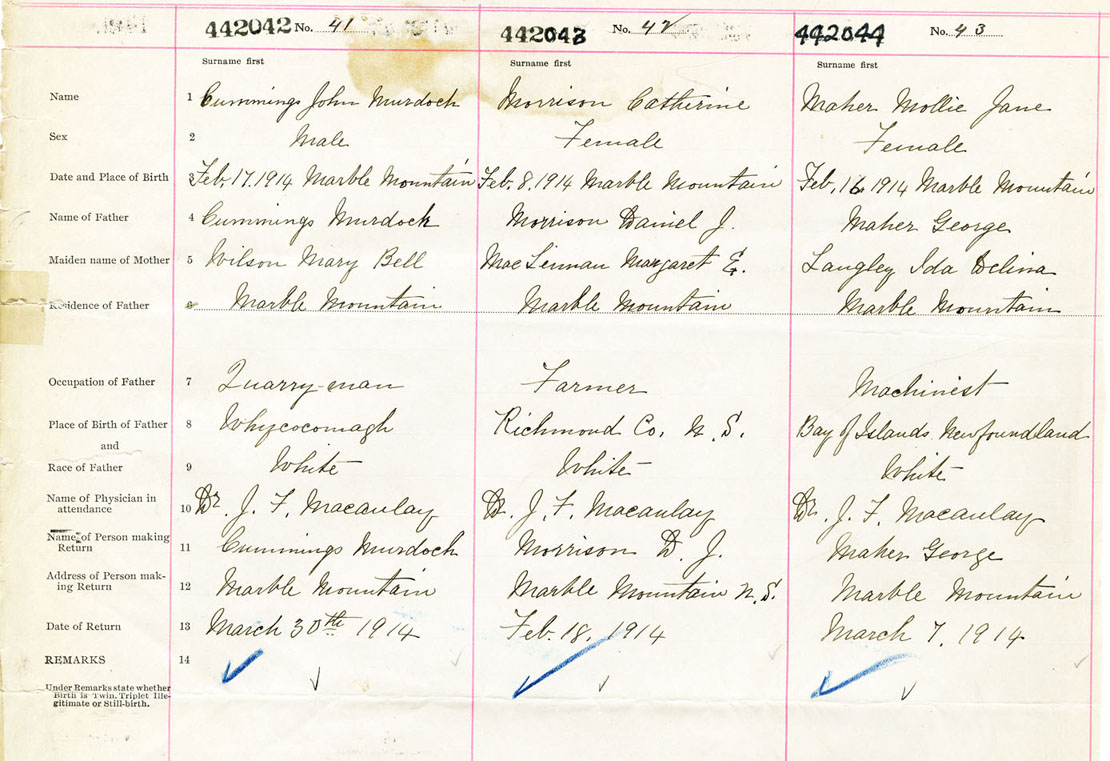 442042 No. 41 442043 No. 42 442044 No. 43
Surname first Surname first Surname first
Name 1 Cummings John Murdock Morrison Catherine Maher Mollie Jane
Sex 2 Male Female Female
Date and Place of Birth 3 Feb. 17. 1914 Marble Mountain Feb. 8, 1914 Marble Mountain Feb. 16, 1914 Marble Mountain
Name of Father 4 Cummings Murdock Morrison Daniel J. Maher George
Maiden name of Mother 5 Wilson Mary Bell MacLennan Margaret E. Langley Ida Delina
Residence of Father 6 Marble Mountain Marble Mountain Marble Mountain
Occupation of Father 7 Quarry-man Farmer Machinest
Place of Birth of Father 8 Whycocomagh Richmond Co. N. S. Bay of Islands Newfoundland
and
Race of Father 9 White White White
Name of Physician in
attendance 10 Dr. J. F. Macaulay Dr. J. F. Macaulay Dr. J. F. Macaulay
Name of Person making
Return 11 Cummings Murdock Morrison D. J. Maher George
Address of Person mak-
ing Return 12 Marble Mountain Marble Mountain N.S. Marble Mountain
Date of Return 13 March 30th 1914 Feb. 18, 1914 March 7, 1914
REMARKS 14
Under Remarks state whether
Birth is Twin, Triplet Ille-
gitimate or Still-birth.